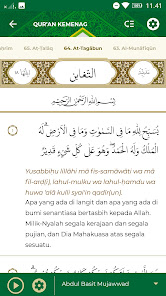 11.41
QUR'AN KEMENAG
65. At-Talāq
64. At-Tagābun
63. Al-Munāfiqūn
التغابن
بِسْمِ اللّٰهِ الرَّحْمٰنِ الرَّحِيْمِ
يُسَبِّحُ لِلّٰهِ مَا فِى السَّمٰوٰتِ وَمَا فِى الْاَرْضِۚ لَهُ
الْمُلْكُ وَلَهُ الْحَمْدُۖ وَهُوَ عَلٰى كُلِّ شَيْءٍ قَدِيْرٌ
1
Yusabbiḥu lillāhi mā fis-samāwāti wa mā
fil-arḍ(i), lahul-mulku wa lahul-ḥamdu wa
huwa 'alā kulli syai'in qadīr(un).
Apa yang ada di langit dan apa yang ada di
bumi senantiasa bertasbih kepada Allah.
Milik-Nyalah segala kerajaan dan segala
pujian, dan Dia Mahakuasa atas segala
sesuatu.
Abdul Basit Mujawwad